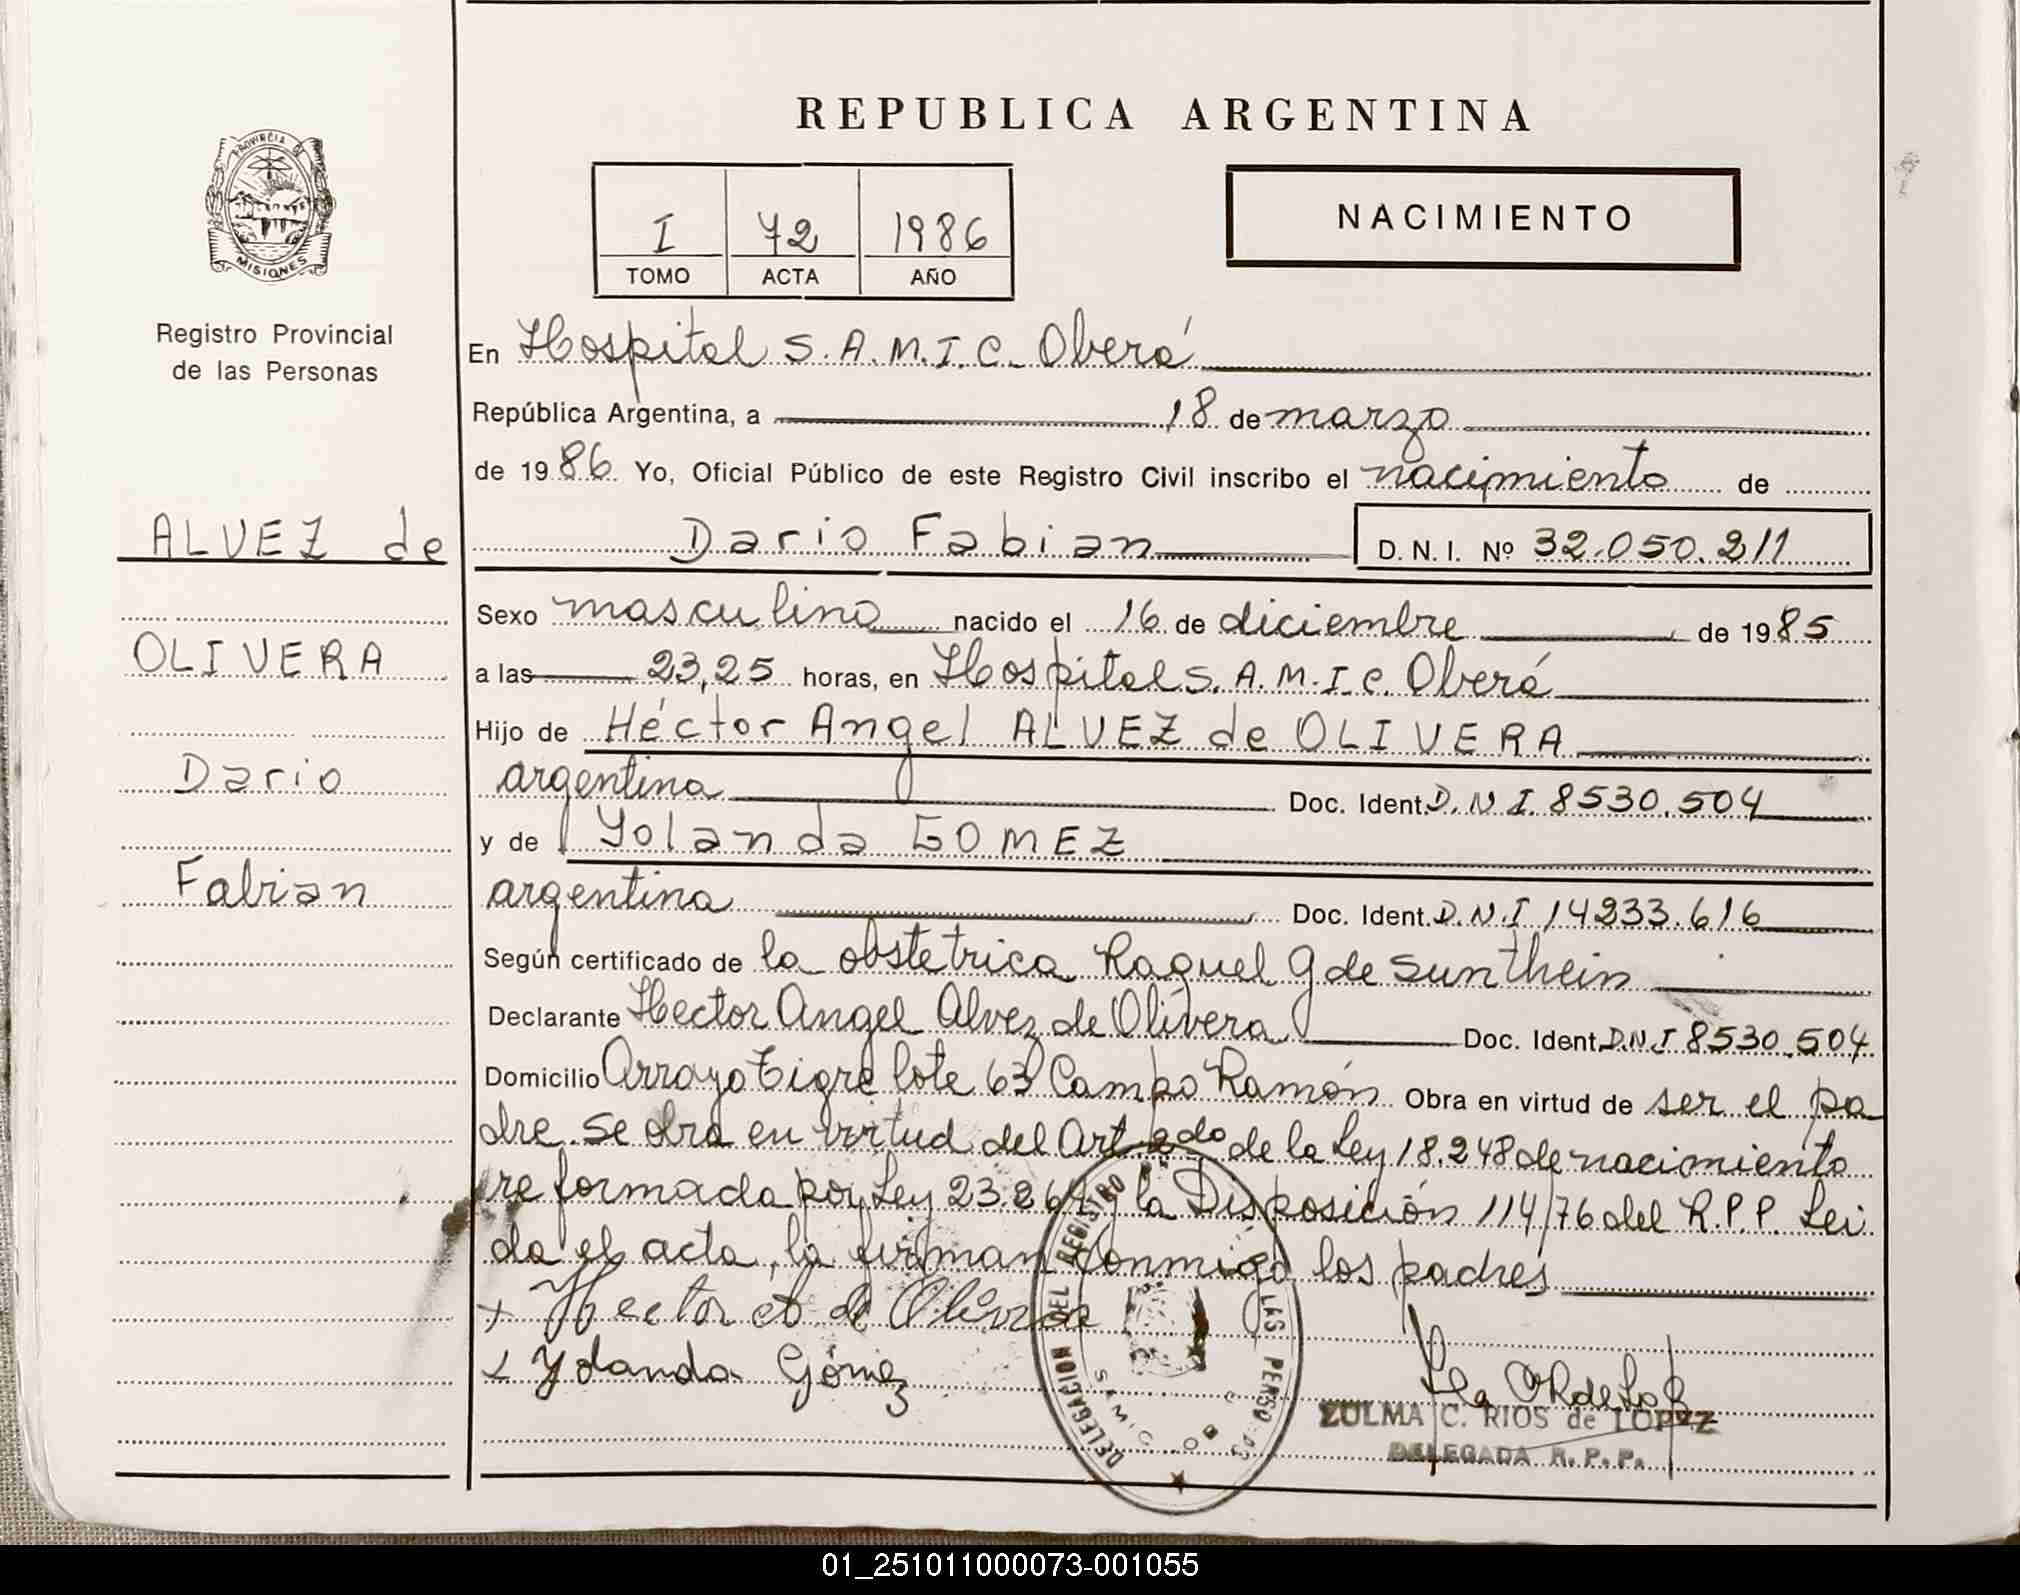 REPUBLICA ARGENTINA
PROVINCIA DE
MISIONES
Registro Provincial
de las Personas
I 72 1986
TOMO ACTA AÑO
NACIMIENTO
ALVEZ de
OLIVERA
Dario
Fabian
En Hospital S.A.M.I.C. Oberá
República Argentina, a 18 de marzo
de 1986 Yo, Oficial Público de este Registro Civil inscribo el nacimiento de
Dario Fabian D.N.I. Nº 32.050.211
Sexo masculino nacido el 16 de diciembre de 1985
a las 23,25 horas, en Hospital S.A.M.I.C. Oberá
Hijo de Héctor Angel ALVEZ de OLIVERA
argentina Doc. Ident. D.N.I. 8530.504
y de Yolanda GOMEZ
argentina Doc. Ident. D.N.I 14233.616
Según certificado de la obstetrica Raquel G de Sunthein
Declarante Hector Angel Alvez de Olivera Doc. Ident. D.N.I 8530.504
Domicilio Arroyo Tigre lote 63 Campo Ramón Obra en virtud de ser el pa
dre. Se obra en virtud del Art 2do de la Ley 18.248 de nacimiento
reformada por Ley 23.264 y la Disposición 114/76 del R.P.P. Lei
da el acta, la firman conmigo los padres
x Hector A de Olivera
x Yolanda Gómez
DELEGACION DEL REGISTRO LAS PERSO
SAMIC
ZULMA C. RIOS de LOPEZ
DELEGADA R.P.P.
01_251011000073-001055